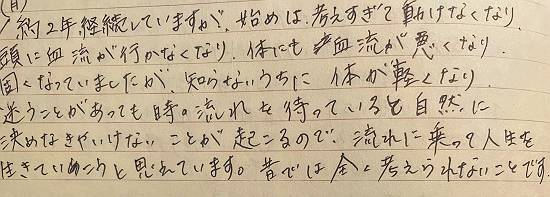 (自)
約2年継続していますが、始めは、考えすぎて動けなくなり、
頭に血流が行かなくなり、体にも血流が悪くなり、
固くなっていましたが、知らないうちに体が軽くなり
迷うことがあっても時の流れを待っていると自然に
決めなきゃいけないことが起こるので、流れに乗って人生を
生きていこうと思えています。昔では全く考えられないことです。